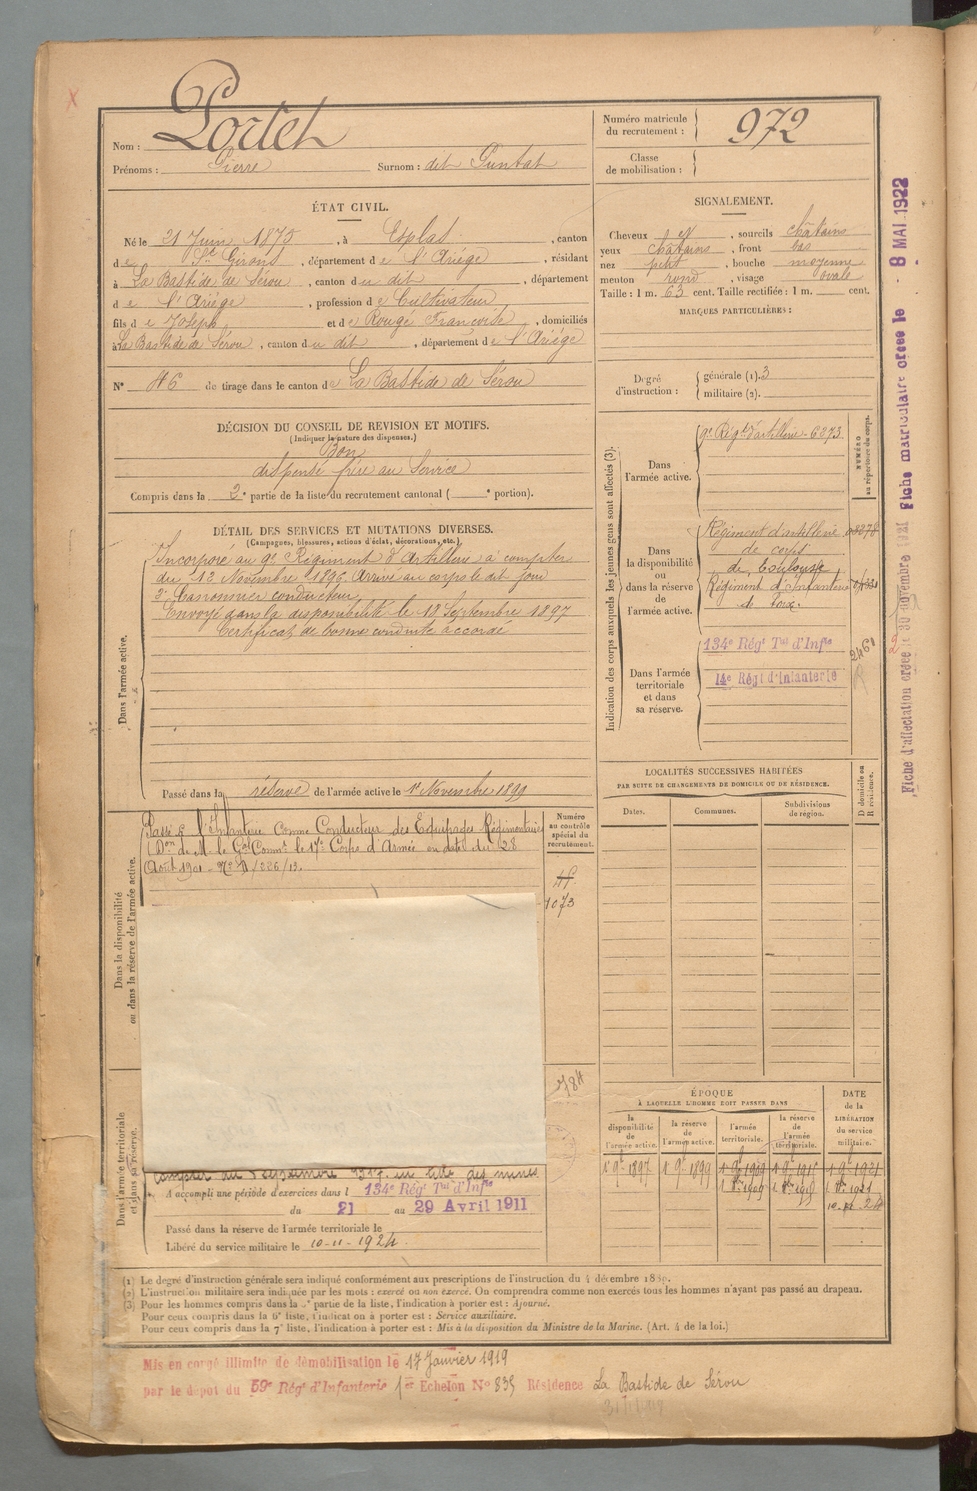 Nom : Portet
Prénoms : Pierre Surnom : dit Puntat
Numéro matricule du recrutement : 972
Classe de mobilisation :
ÉTAT CIVIL.
Né le 21 Juin 1875, à Esplas, canton
de St Girons, département de l'Ariège, résidant
à La Bastide de Sérou, canton du dit, département
de l'Ariège, profession de Cultivateur
fils de Joseph et de Rougé Françoise, domiciliés
à La Bastide de Sérou, canton du dit, département de l'Ariège
N° 46 de tirage dans le canton de La Bastide de Sérou
SIGNALEMENT.
Cheveux et, sourcils châtains
yeux châtains, front bas
nez petit, bouche moyenne
menton rond, visage ovale
Taille : 1 m. 63 cent. Taille rectifiée : 1 m. cent.
MARQUES PARTICULIÈRES :
Degré d'instruction : générale (1). 3
militaire (2).
DÉCISION DU CONSEIL DE REVISION ET MOTIFS.
(Indiquer la nature des dispenses.)
Bon
dispensé frère au Service
Compris dans la 2e partie de la liste du recrutement cantonal ( e portion).
DÉTAIL DES SERVICES ET MUTATIONS DIVERSES.
(Campagnes, blessures, actions d'éclat, décorations, etc.)
Dans l'armée active.
Incorporé au 9e Régiment d'Artillerie à compter
du 13 Novembre 1896. Arrivé au corps le dit jour
2e Canonnier conducteur
Envoyé dans la disponibilité le 18 Septembre 1897
Certificat de bonne conduite accordé
Passé dans la réserve de l'armée active le 1er Novembre 1899
Indication des corps auxquels les jeunes gens sont affectés (3).
NUMÉRO au répertoire du corps.
Dans l'armée active.
9e Régt d'artillerie - 6273
Dans la disponibilité ou dans la réserve de l'armée active.
Régiment d'artillerie
de corps
de Toulouse
Régiment d'Infanterie
de Foix.
Dans l'armée territoriale et dans sa réserve.
134e Régt Tal d'Infie
14e Régt d'Infanterie
LOCALITÉS SUCCESSIVES HABITÉES
PAR SUITE DE CHANGEMENTS DE DOMICILE OU DE RÉSIDENCE.
Dates. Communes. Subdivisions de région. D domicile ou R résidence.
Dans la disponibilité ou dans la réserve de l'armée active.
Numéro au contrôle spécial du recrutement.
Passé à l'Infanterie comme Conducteur des Équipages Régimentaires
(Don de M. le Gal Commt le 17e Corps d'Armée en date du 28
Août 1901
1073
784
Dans l'armée territoriale et dans sa réserve.
compter du 5 septembre 1917
A accompli une période d'exercices dans l 134e Régt Tal d'Infie
du 21 au 29 Avril 1911
Passé dans la réserve de l'armée territoriale le
Libéré du service militaire le 10-11-1924.
ÉPOQUE
À LAQUELLE L'HOMME DOIT PASSER DANS
la disponibilité de l'armée active.
la réserve de l'armée active.
l'armée territoriale.
la réserve de l'armée territoriale.
DATE de la LIBÉRATION du service militaire.
(1) Le degré d'instruction générale sera indiqué conformément aux prescriptions de l'instruction du 4 décembre 1889.
(2) L'instruction militaire sera indiquée par les mots : exercé ou non exercé. On comprendra comme non exercés tous les hommes n'ayant pas passé au drapeau.
(3) Pour les hommes compris dans la partie de la liste, l'indication à porter est : Ajourné.
Pour ceux compris dans la 6e liste, l'indication à porter est : Service auxiliaire.
Pour ceux compris dans la 7e liste, l'indication à porter est : Mis à la disposition du Ministre de la Marine. (Art. 4 de la loi.)
Mis en congé illimité de démobilisation le 17 Janvier 1919
par le dépôt du 59e Régt d'Infanterie 1er Echelon N° 835 Résidence La Bastide de Sérou
Fiche matriculaire créée le 8 MAI 1922
Fiche d'affectation créée le 30 novembre 1921